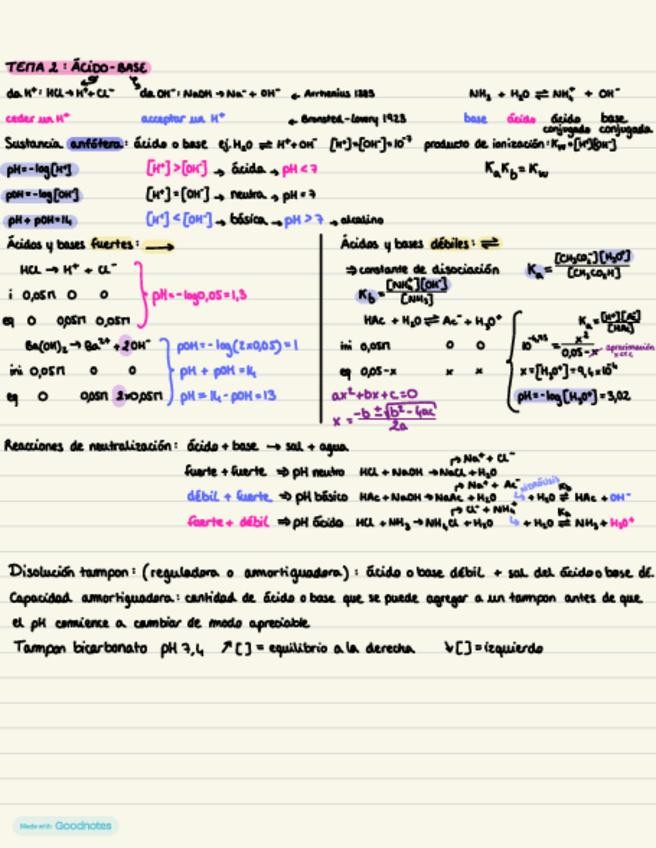 TEMA 2: ÁCIDO-BASE
da H⁺: HCL → H⁺ + CL⁻ da OH⁻: NaOH → Na⁺ + OH⁻ ← Arrhenius 1883 NH₃ + H₂O ⇌ NH₄⁺ + OH⁻
ceder un H⁺ aceptar un H⁺ ← Bronsted-Lowry 1923 base ácido ácido conjugado base conjugada
Sustancia anfótera: ácido o base ej. H₂O ⇌ H⁺ + OH⁻ [H⁺]=[OH⁻]=10⁻⁷ producto de ionización: Kw=[H⁺][OH⁻]
pH=-log[H⁺] [H⁺]>[OH⁻] → ácida → pH<7 KaKb=Kw
pOH=-log[OH⁻] [H⁺]=[OH⁻] → neutra → pH=7
pH + pOH=14 [H⁺]<[OH⁻] → básica → pH>7 → alcalino
Ácidos y bases fuertes: →
HCL → H⁺ + CL⁻
i 0,05M 0 0 pH=-log0,05=1,3
eq 0 0,05M 0,05M
Ba(OH)₂ → Ba²⁺ + 2OH⁻ pOH=-log(2x0,05)=1
ini 0,05M 0 0 pH + pOH=14
eq 0 0,05M 2x0,05M pH=14-pOH=13
Ácidos y bases débiles: ⇌
⇒ constante de disociación Ka=[CH₃CO₂⁻][H₃O⁺]/[CH₃CO₂H]
Kb=[NH₄⁺][OH⁻]/[NH₃]
HAc + H₂O ⇌ Ac⁻ + H₃O⁺ Ka=[H⁺][Ac⁻]/[HAc]
ini 0,05M 0 0 x²/0,05-x aproximación
eq 0,05-x x x x=[H₃O⁺]=9,4x10⁻⁴
ax²+bx+c=0 pH=-log[H₃O⁺]=3,02
x=-b±√b²-4ac/2a
Reacciones de neutralización: ácido + base → sal + agua
→ Na⁺ + CL⁻
fuerte + fuerte ⇒ pH neutro HCL + NaOH → NaCL + H₂O
→ Na⁺ + Ac⁻ hidrólisis Kb
débil + fuerte ⇒ pH básico HAc + NaOH → NaAc + H₂O ↳ + H₂O ⇌ HAc + OH⁻
→ CL⁻ + NH₄⁺ Ka
fuerte + débil ⇒ pH ácido HCL + NH₃ → NH₄CL + H₂O ↳ + H₂O ⇌ NH₃ + H₃O⁺
Disolución tampon: (reguladora o amortiguadora): ácido o base débil + sal del ácido o base dé.
Capacidad amortiguadora: cantidad de ácido o base que se puede agregar a un tampon antes de que
el pH comience a cambiar de modo apreciable
Tampon bicarbonato pH 7,4 ↗[] = equilibrio a la derecha ↘[] = izquierdo
Made with Goodnotes